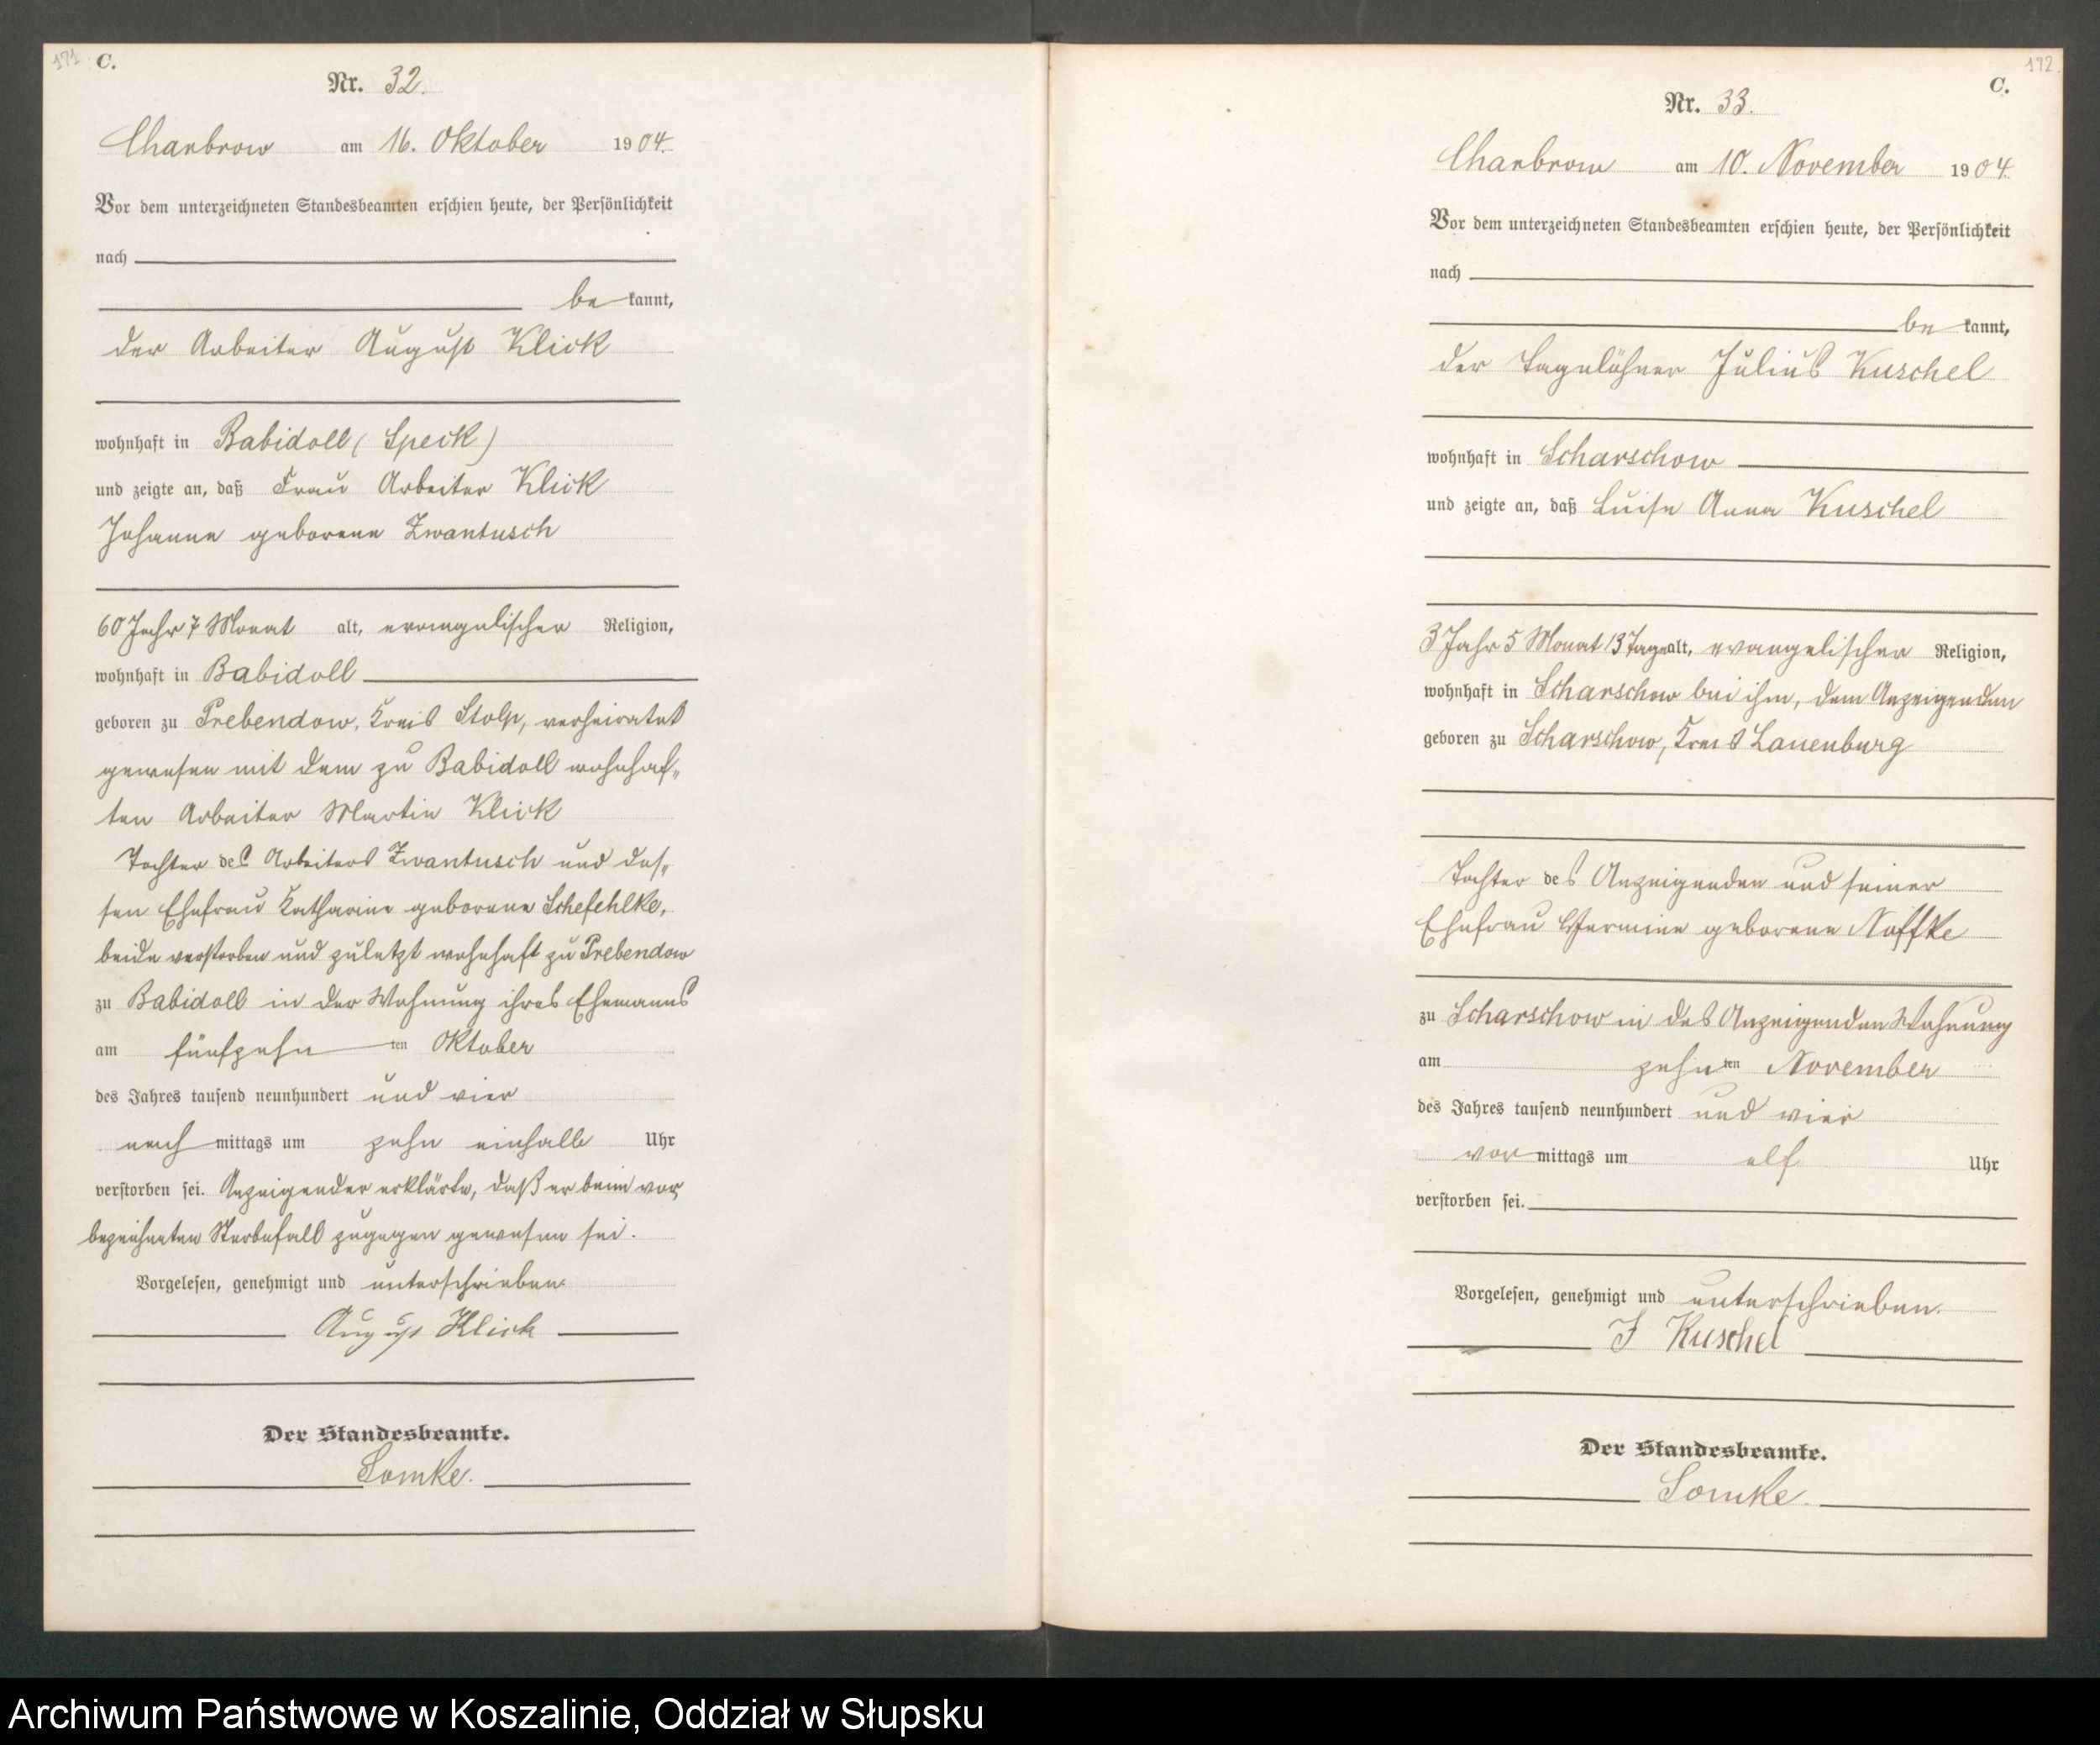 171 C.
Nr. 32.
Charbrow am 16. Oktober 1904.
Vor dem unterzeichneten Standesbeamten erschien heute, der Persönlichkeit
nach
be kannt,
der Arbeiter August Klick
wohnhaft in Babidoll (Speck)
und zeigte an, daß Frau Arbeiter Klick
Johanne geborene Zwantusch
60 Jahr 7 Monat alt, evangelischer Religion,
wohnhaft in Babidoll
geboren zu Prebendow, Kreis Stolp, verheiratet
gewesen mit dem zu Babidoll wohnhaf„
ten Arbeiter Martin Klick
Tochter des Arbeiters Zwantusch und des„
sen Ehefrau Katharine geborene Schefehlke,
beide verstorben und zuletzt wohnhaft zu Prebendow
zu Babidoll in der Wohnung ihres Ehemanns
am fünfzehn ten Oktober
des Jahres tausend neunhundert und vier
nach mittags um zehn einhalb Uhr
verstorben sei. Anzeigender erklärte, daß er beim vor„
bezeichneten Sterbefall zugegen gewesen sei.
Vorgelesen, genehmigt und unterschrieben.
August Klick
Der Standesbeamte.
Lomke.
172
C.
Nr. 33.
Charbrow am 10. November 1904.
Vor dem unterzeichneten Standesbeamten erschien heute, der Persönlichkeit
nach
be kannt,
der Tagelöhner Julius Kuschel
wohnhaft in Scharschow
und zeigte an, daß Luise Anna Kuschel
3 Jahr 5 Monat 13 Tage alt, evangelischer Religion,
wohnhaft in Scharschow bei ihm, dem Anzeigenden
geboren zu Scharschow, Kreis Lauenburg
Tochter des Anzeigenden und seiner
Ehefrau Hermine geborene Noffke
zu Scharschow in des Anzeigenden Wohnung
am zehn ten November
des Jahres tausend neunhundert und vier
vor mittags um elf Uhr
verstorben sei.
Vorgelesen, genehmigt und unterschrieben.
J Kuschel
Der Standesbeamte.
Lomke.
Archiwum Państwowe w Koszalinie, Oddział w Słupsku